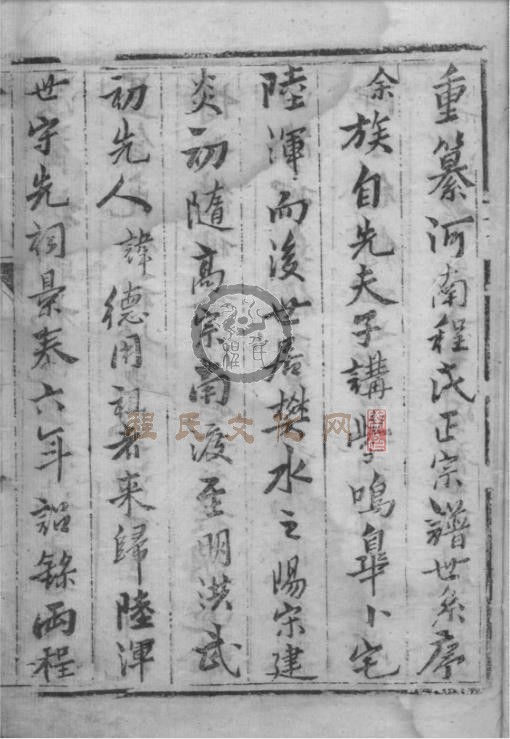 重纂河南程氏正宗譜世系序
余族自先夫子講學鳴皐卜宅
陸渾而後世居樊水之陽宋建
炎初隨高宗南渡至明洪武
初先人諱德用祖者来歸陸渾
世守先祠景泰六年詔錄兩程
程氏文化网